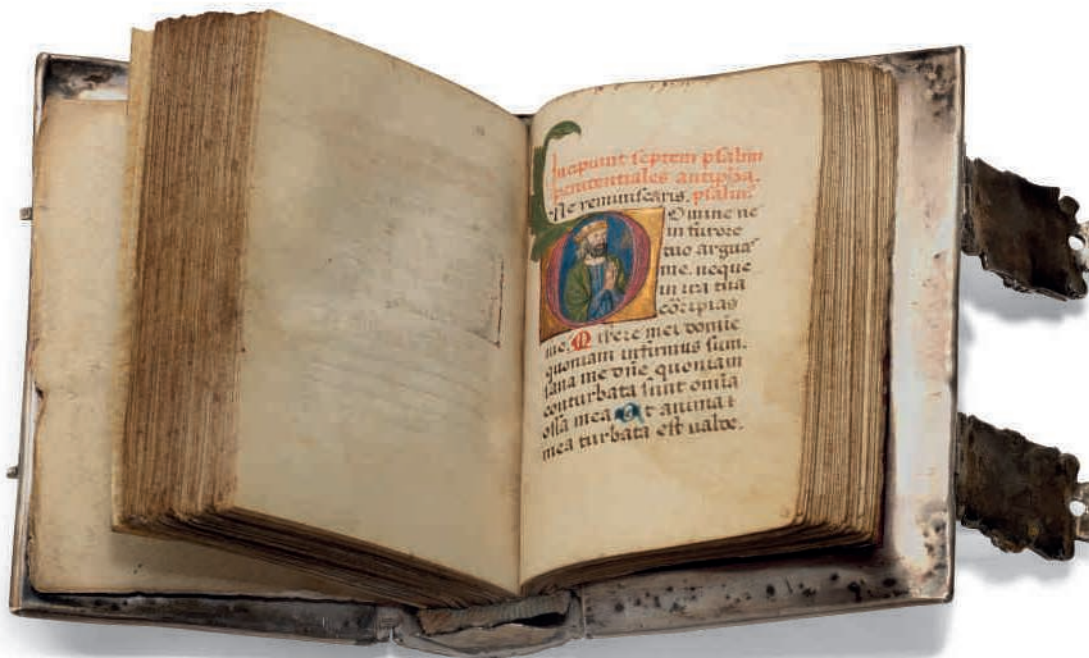 Incipiunt septem psalmi
penitentiales antipha.
Ne reminiscaris. psalm9
Domine ne
in furore
tuo arguaˢ
me. neque
in ira tua
cōrripias
me. Miserere mei domīe
quoniam infirmus sum.
sana me dn̄e quoniam
conturbata sunt om̄ia
ossa mea Et anima
mea turbata est valde.